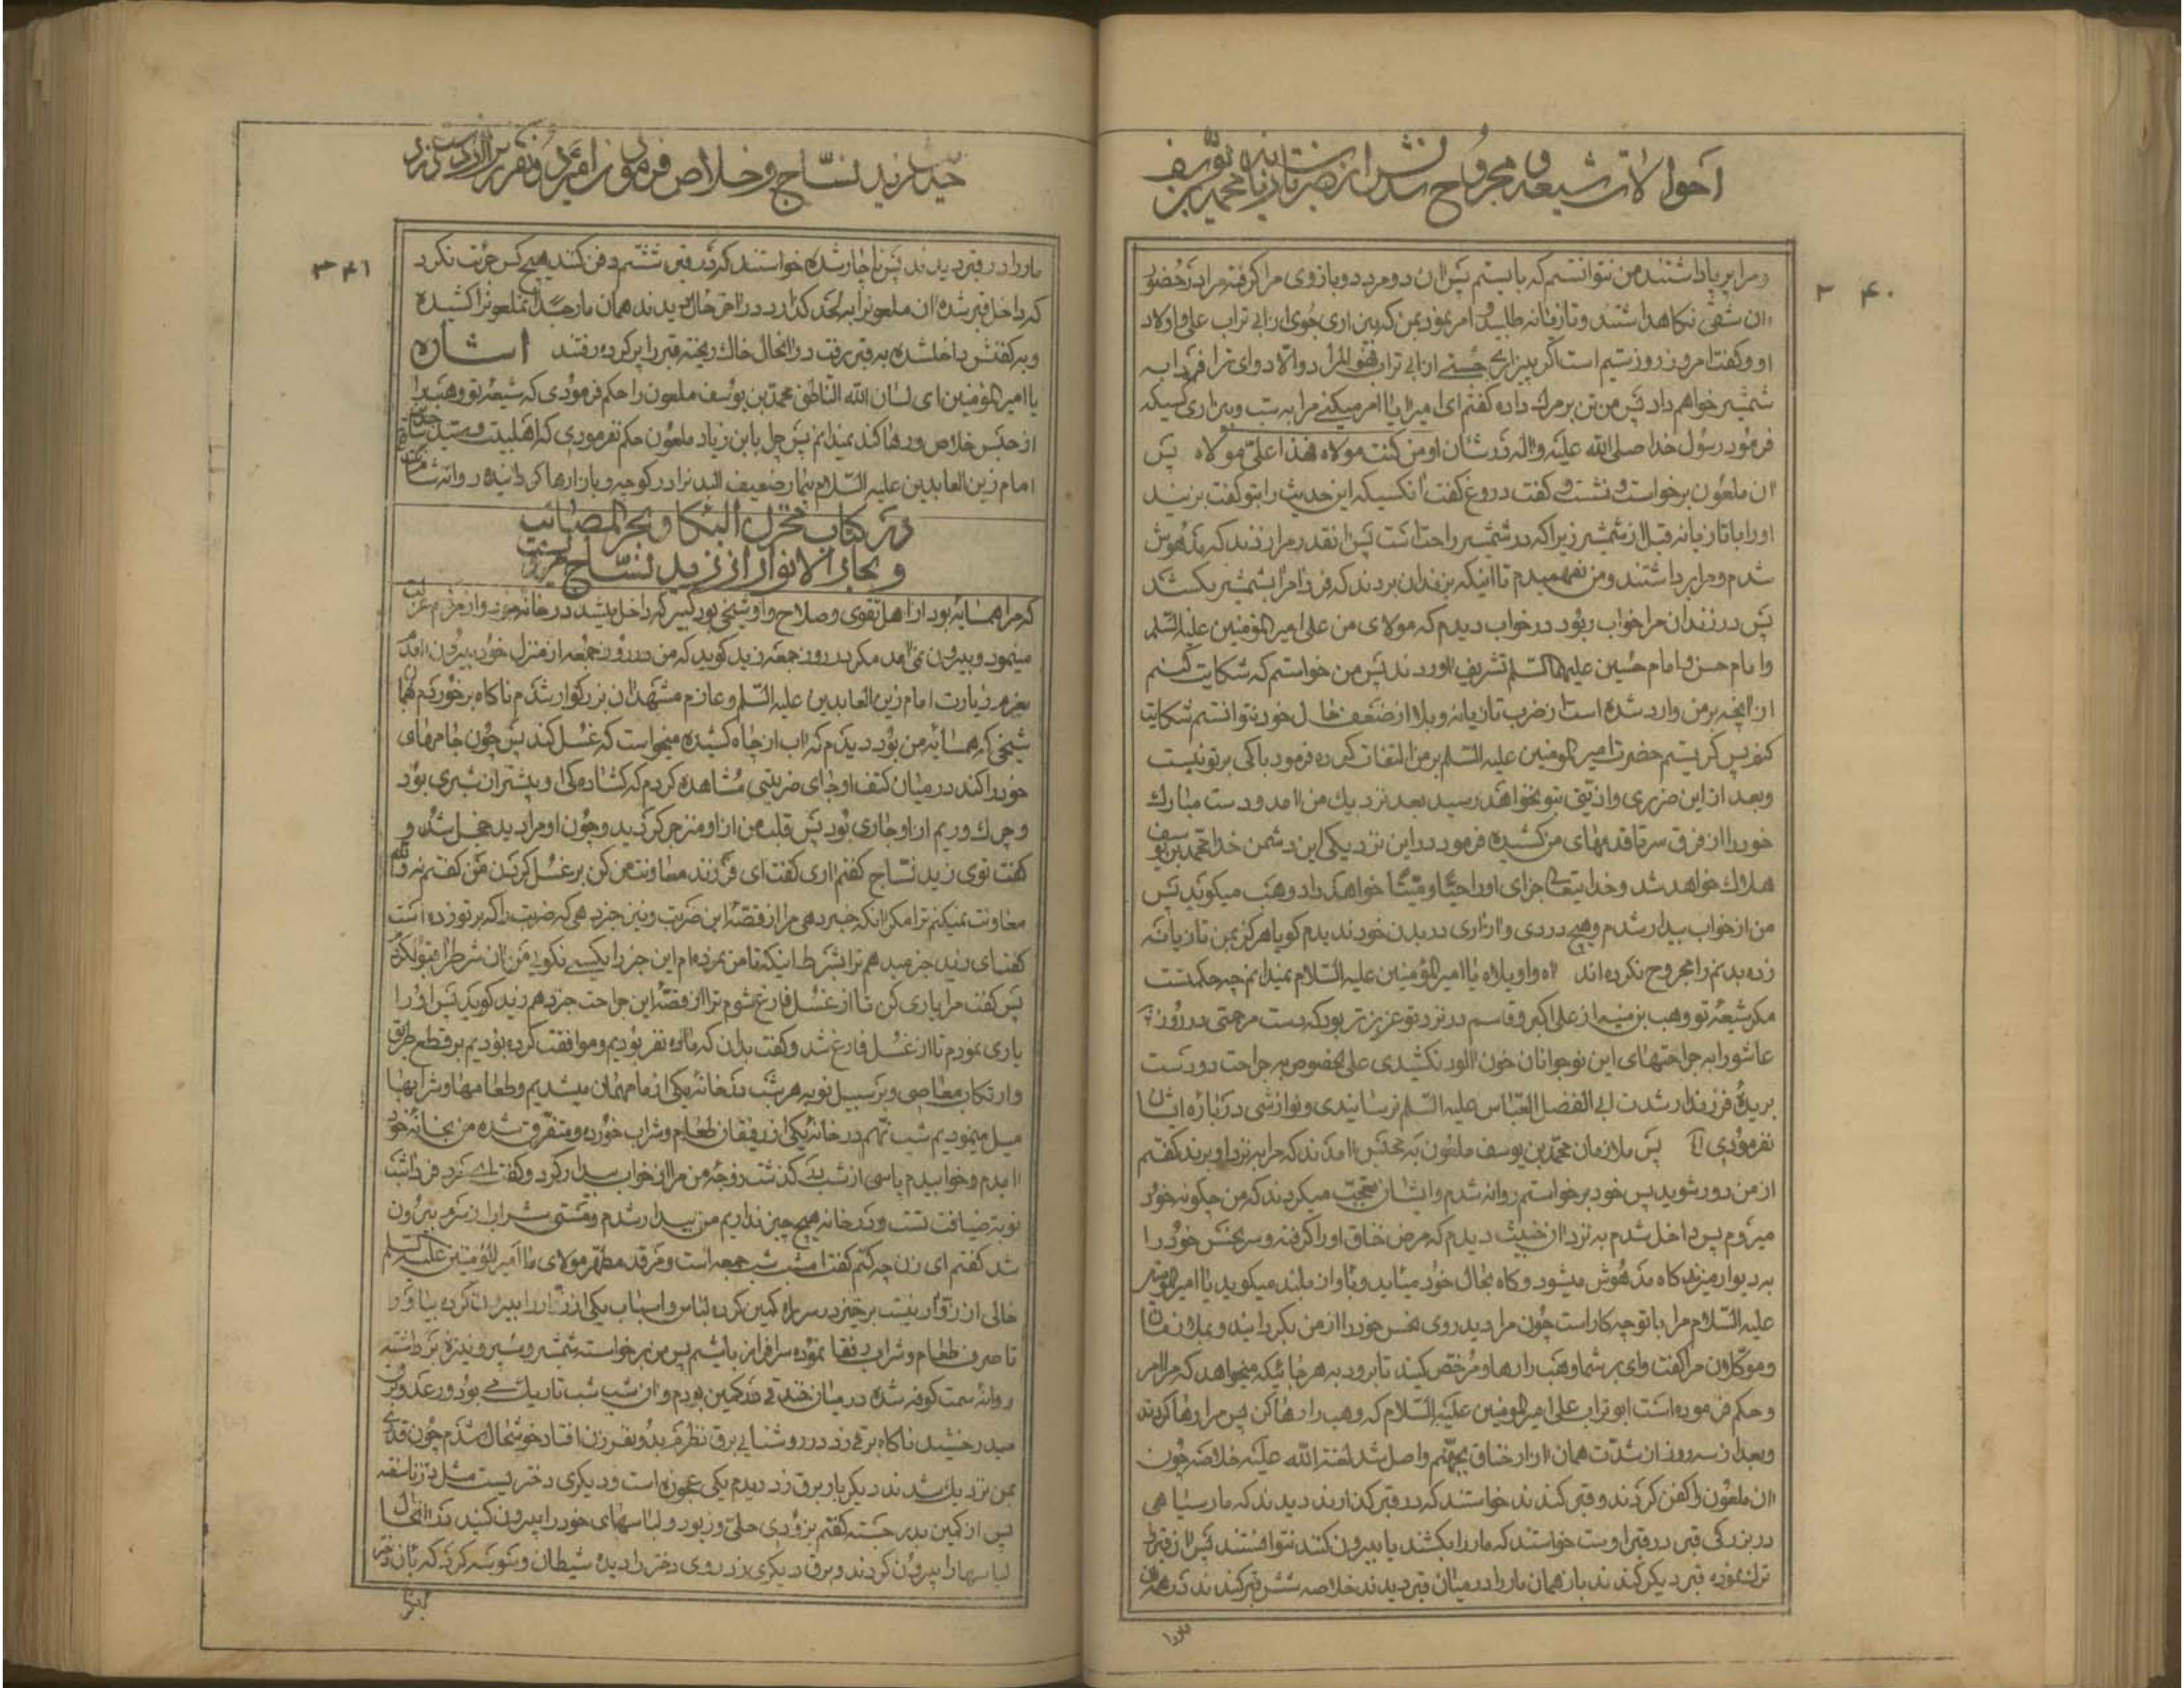 احوالات شیعه و مجروح شدنش از ضرب تازیانه محمد بن یوسف
۲۴۰
و مرا برپا داشتند من نتوانستم که بایستم پس ان دو مرد دو بازوی مرا گرفته مرا در حضور
ان شقی نگاهداشتند و تازیانه طلبید و امر نمود بمن که بیزاری جوی از ابی تراب علی و اولاد
او و گفت امروز روز ستیم است اگر بیزاری جستی از ابی تراب فهو المراد والا دوای ترا فردا به
شمشیر خواهم داد پس من تن بمرک داده گفتم ای امیر ایا امر میکنی مرا به سب و بیزاری کسیکه
فرمود رسول خدا صلی الله علیه و اله در شان او من کنت مولاه فهذا علی مولاه پس
ان ملعون برخواست و نشست و گفت دروغ گفت انکسیکه این حدیث را بتو گفت بزنید
او را با تازیانه قبل از شمشیر زیرا که در شمشیر راحت است پس انقدر مرا زدند که مدهوش
شدم و مرا برداشتند و من نفهمیدم تا اینکه بزندان بردند که فردا مرا بشمشیر بکشند
پس در زندان مرا خواب ربود در خواب دیدم که مولای من علی امیر المؤمنین علیه السلم
و امام حسن و امام حسین علیهما السلم تشریف اوردند پس من خواستم که شکایت کنم
از انچه بر من وارد شده است از ضرب تازیانه و بلا از ضعف حال خود نتوانستم شکایت
کنم پس گریستم حضرت امیر المومنین علیه السلم بر من التفات کرده فرمود باکی بر تو نیست
و بعد از این ضرری و اذیتی بتو نخواهد رسید بعد نزدیك من امد و دست مبارك
خود را از فرق سر تا قدمهای من کشیده فرمود در این نزدیکی این دشمن خدا محمد بن یوسف
هلاك خواهد شد و خدایتعالی جزای او را حیّا و میّتا خواهد داد وهب میکوید پس
من از خواب بیدار شدم و هیچ دردی و ازاری در بدن خود ندیدم کویا هرکز بمن تازیانه
زده بدنم را مجروح نکرده اند اه واویلاه یا امیر المؤمنین علیه السلام نمیدانم چه حکمتست
مکر شیعهٔ تو وهب بن منبه از علی اکبر و قاسم در نزد تو عزیزتر بود که دست مرحمتی در روز
عاشورا به جراحتهای این نوجوانان خون الود نکشیدی علی الخصوص به جراحت دو دست
بریدهٔ فرزند ارشدت ابی الفضل العباس علیه السلم نرسانیدی و نوازشی در باره ایشان
نفرمودی پس ملازمان محمد بن یوسف ملعون به محبس امدند که مرا به نزد او برند گفتم
از من دور شوید پس خود برخواستم روانه شدم و ایشان تعجب میکردند که من چکونه خود
میروم پس داخل شدم به نزد ان خبیث دیدم که مرض خناق او را گرفته و سر نحس خود را
به دیوار میزند گاه مدهوش میشود و گاه بحال خود میاید و باواز بلند میکوید یا امیر المومنین
علیه السلام مرا با تو چه کار است چون مرا دید روی نحس خود را از من بگردانید و بملازمان
و موکلان مرا گفت وای بر شما وهب را رها و مرخص کنید تا برود به هر جائیکه میخواهد که مرا امر
و حکم فرموده است ابو تراب علی امیر المومنین علیه السلام که وهب را رها کن پس مرا رها کردند
و بعد از سه روز از شدت همان ازار خناق بجهنم واصل شد لعنة الله علیه خلاصه چون
ان ملعون را کفن کردند و قبر کندند خواستند که در قبر گذارند دیدند که مار سیاهی
در بزرکی قبر در قبر اوست خواستند که مار را بکشند یا بیرون کنند نتوانستند پس از قبر
ترك نموده قبر دیکر کندند باز همان مار را در میان قبر دیدند خلاصه شش قبر کندند در همه
مار را
حدیث زید نساج و خلاص فرمودن امیر
۳۴۱
مار را در قبر دیدند پس ناچار شده خواستند که در قبر ششم دفن کنند هیچ کس جرئت نکرد
که داخل قبر شده ان ملعونرا به لحد گذارد در اخر حال دیدند همان مار جسد انملعونرا کشیده
و به کفنش داخلشده به قبر رفت در انحال خاك ریخته قبر را پر کرده رفتند اشاره
یا امیر المؤمنین ای لسان الله الناطق محمد بن یوسف ملعون را حکم فرمودی که شیعهٔ تو وهب را
از حبس خلاص و رها کند نمیدانم پس چرا با بن زیاد ملعون حکم نفرمودی که اهلبیت و سید
امام زین العابدین علیه السلام بیمار ضعیف البدنرا در کوچه و بازارها گردانیده روانه شام
در کتاب مخزن البکا و بحر المصائب
و بحار الانوار از زید نساج مرویست
که مرا همسایه بود از اهل تقوی و صلاح و او شیخی بود کبیر که داخل میشد در خانه خود و از مردم عزلت
مینمود و بیرون نمی امد مکر در روز جمعه زید کوید که من در روز جمعه از منزل خود بیرون امدم
بعزم زیارت امام زین العابدین علیه السلم و عازم مشهد ان بزرکوار شدم ناکاه برخوردم بهمان
شیخی که همسایه من بود دیدم که اب از چاه کشیده میخواست که غسل کند پس چون جامه های
خود را کند در میان کتف او جای ضربتی مشاهده کردم که کشاده گی او بیشتر از شبری بود
و چرك و ریم از او جاری بود پس قلب من از او منزجر گردید و چون او مرا دید خجل شد و
گفت توی زید نساج گفتم اری گفت ای فرزند معاونت من کن بر غسل کردن من گفتم نه والله
معاونت نمیکنم ترا مکر انکه خبر دهی مرا از قصهٔ این ضربت و نیز خبر دهی که ضربت را که بر تو زده است
گفت ای زید خبر میدهم ترا بشرط اینکه تا من نمرده ام این خبر را بکسی نکوئی من ان شرط را قبول کردم
پس گفت مرا یاری کن تا از غسل فارغ شوم ترا از قصهٔ این جراحت خبر دهم زید کوید پس او را
یاری نمودم تا از غسل فارغ شد و گفت بدان که ما ده نفر بودیم و موافقت کرده بودیم بر قطع طریق
و ارتکاب معاصی و بر سبیل نوبه هر شب در خانه یکی از ما مهمان میشدیم و طعامها و شرابها
میل مینمودیم شب نهم در خانه یکی از رفیقان طعام و شراب خورده و متفرق شده من بخانه خود
امدم و خوابیدم پاسی از شب گذشت زوجه من مرا از خواب بیدار کرد و گفت ای مرد فردا شب
نوبه ضیافت تست و در خانه هیچ چیز نداریم من بیدار شدم و مستی شراب از سرم بیرون
شد گفتم ای زن چه کنم گفت امشب شب جمعه است و مرقد مطهر مولای ما امیر المؤمنین علیه السلم
خالی از زوار نیست برخیز در سر راه کمین کرده لباس و اسباب یکی از زوار را بیرون کرده بیاور
تا صرف طعام و شراب رفقا نموده سرافراز باشیم پس من برخواسته شمشیر و سپر و نیزه برداشته
روانه سمت کوفه شده در میان خندقی در کمین بودم و ان شب شب تاریك بود و رعد و برق
میدرخشید ناکاه برقی زد در روشنایی برق نظرم بدو نفر زن افتاد خوشحال شدم چون قدری
بمن نزدیك شدند دیکر بار برق زد دیدم یکی عجوزه است و دیکری دختریست مثل
پس از کمین بدر جسته گفتم بزودی حلی و زیور و لباسهای خود را بیرون کنید در انحال
لباسها را بیرون کردند و برق دیکری زد روی دختر را دیده شیطان وسوسه کرد که بان دختر